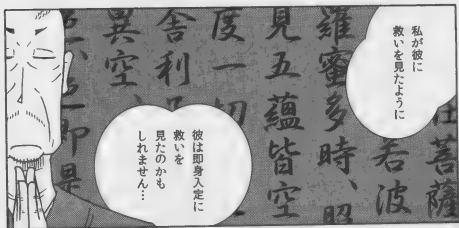 私が彼に
救いを見たように
彼は即身入定に
救いを
見たのかも
しれません…
菩薩
若波
羅蜜多時、照
見五蘊皆空
度一切
舎利
異空、
即是